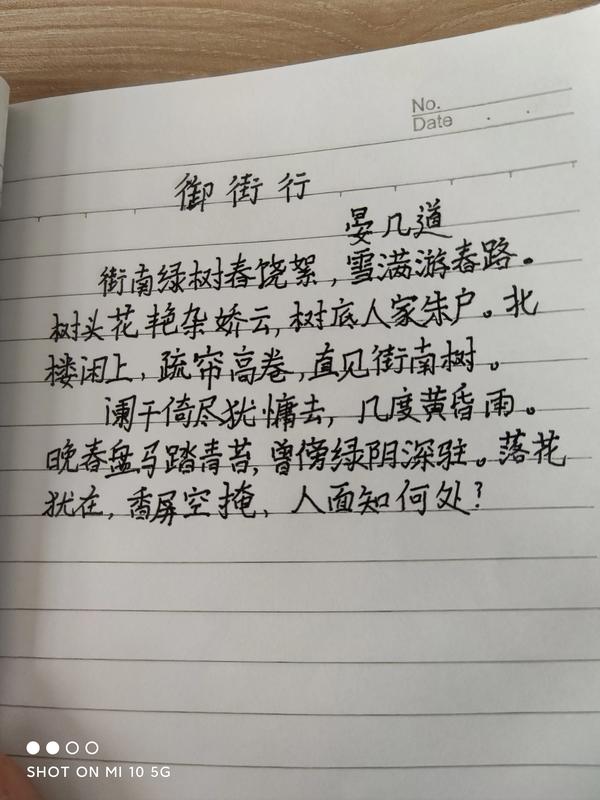 No.
Date
御街行
晏几道
街南绿树春饶絮,雪满游春路。
树头花艳杂娇云,树底人家朱户。北
楼闲上,疏帘高卷,直见街南树。
阑干倚尽犹慵去,几度黄昏雨。
晚春盘马踏青苔,曾傍绿阴深驻。落花
犹在,香屏空掩,人面知何处?
SHOT ON MI 10 5G